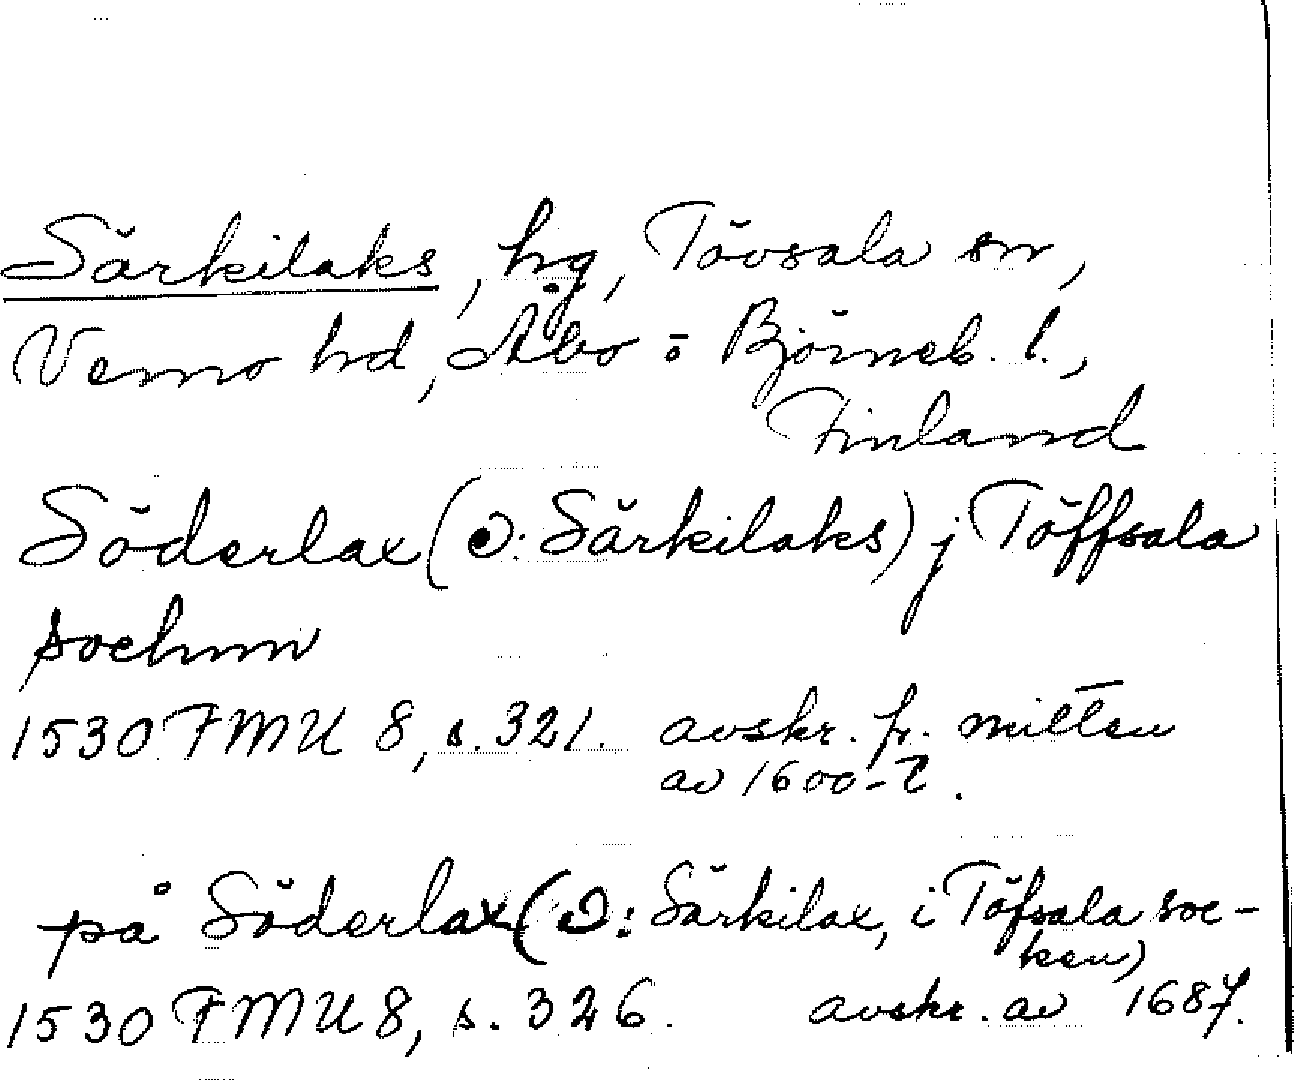 Särkilaks, hg, Tövsala sn,
Vemo hd, Åbo o Björneb. l.,
Finland
Söderlax (ɔ: Särkilaks) j Töffsala
sochnn
1530 FMU 8, s. 321. avskr. fr. mitten
av 1600-t.
på Söderlax (ɔ: Särkilax, i Töfsala soc-
ken)
1530 FMU 8, s. 326. avskr. av 1687.